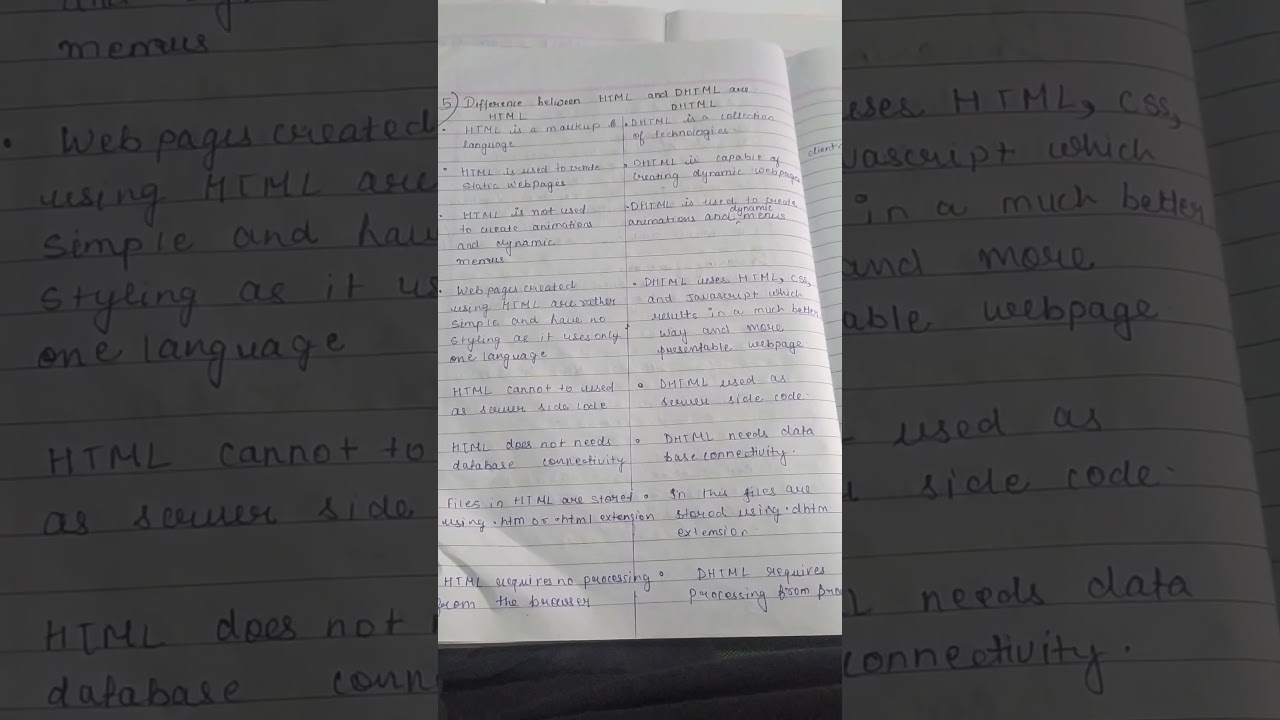 5) Difference between HTML and DHTML are
HTML
DHTML
• HTML is a markup
language
• DHTML is a collection
of technologies.
• HTML is used to create
static webpages
• DHTML is capable of
creating dynamic webpages
• HTML is not used
to create animations
and dynamic
menus
• DHTML is used to create
animations and dynamic menus
• Web pages created
using HTML are rather
simple and have no
styling as it uses only
one language
• DHTML uses HTML, CSS,
and Javascript which
results in a much better
way and more
presentable webpage
HTML cannot to used
as server side code
• DHTML used as
server side code.
HTML does not needs
database connectivity
• DHTML needs data
base connectivity.
Files in HTML are stored
using .htm or .html extension
• In this files are
stored using .dhtm
extension
HTML requires no processing
from the
• DHTML requires
processing from
client
menus
• Web pages created
using HTML are
simple and have
styling as it us
one language
HTML cannot to
as server side
HTML does not
database conn
uses HTML, CSS,
vascript which
in a much better
and more
able webpage
used as
side code.
needs data
connectivity.